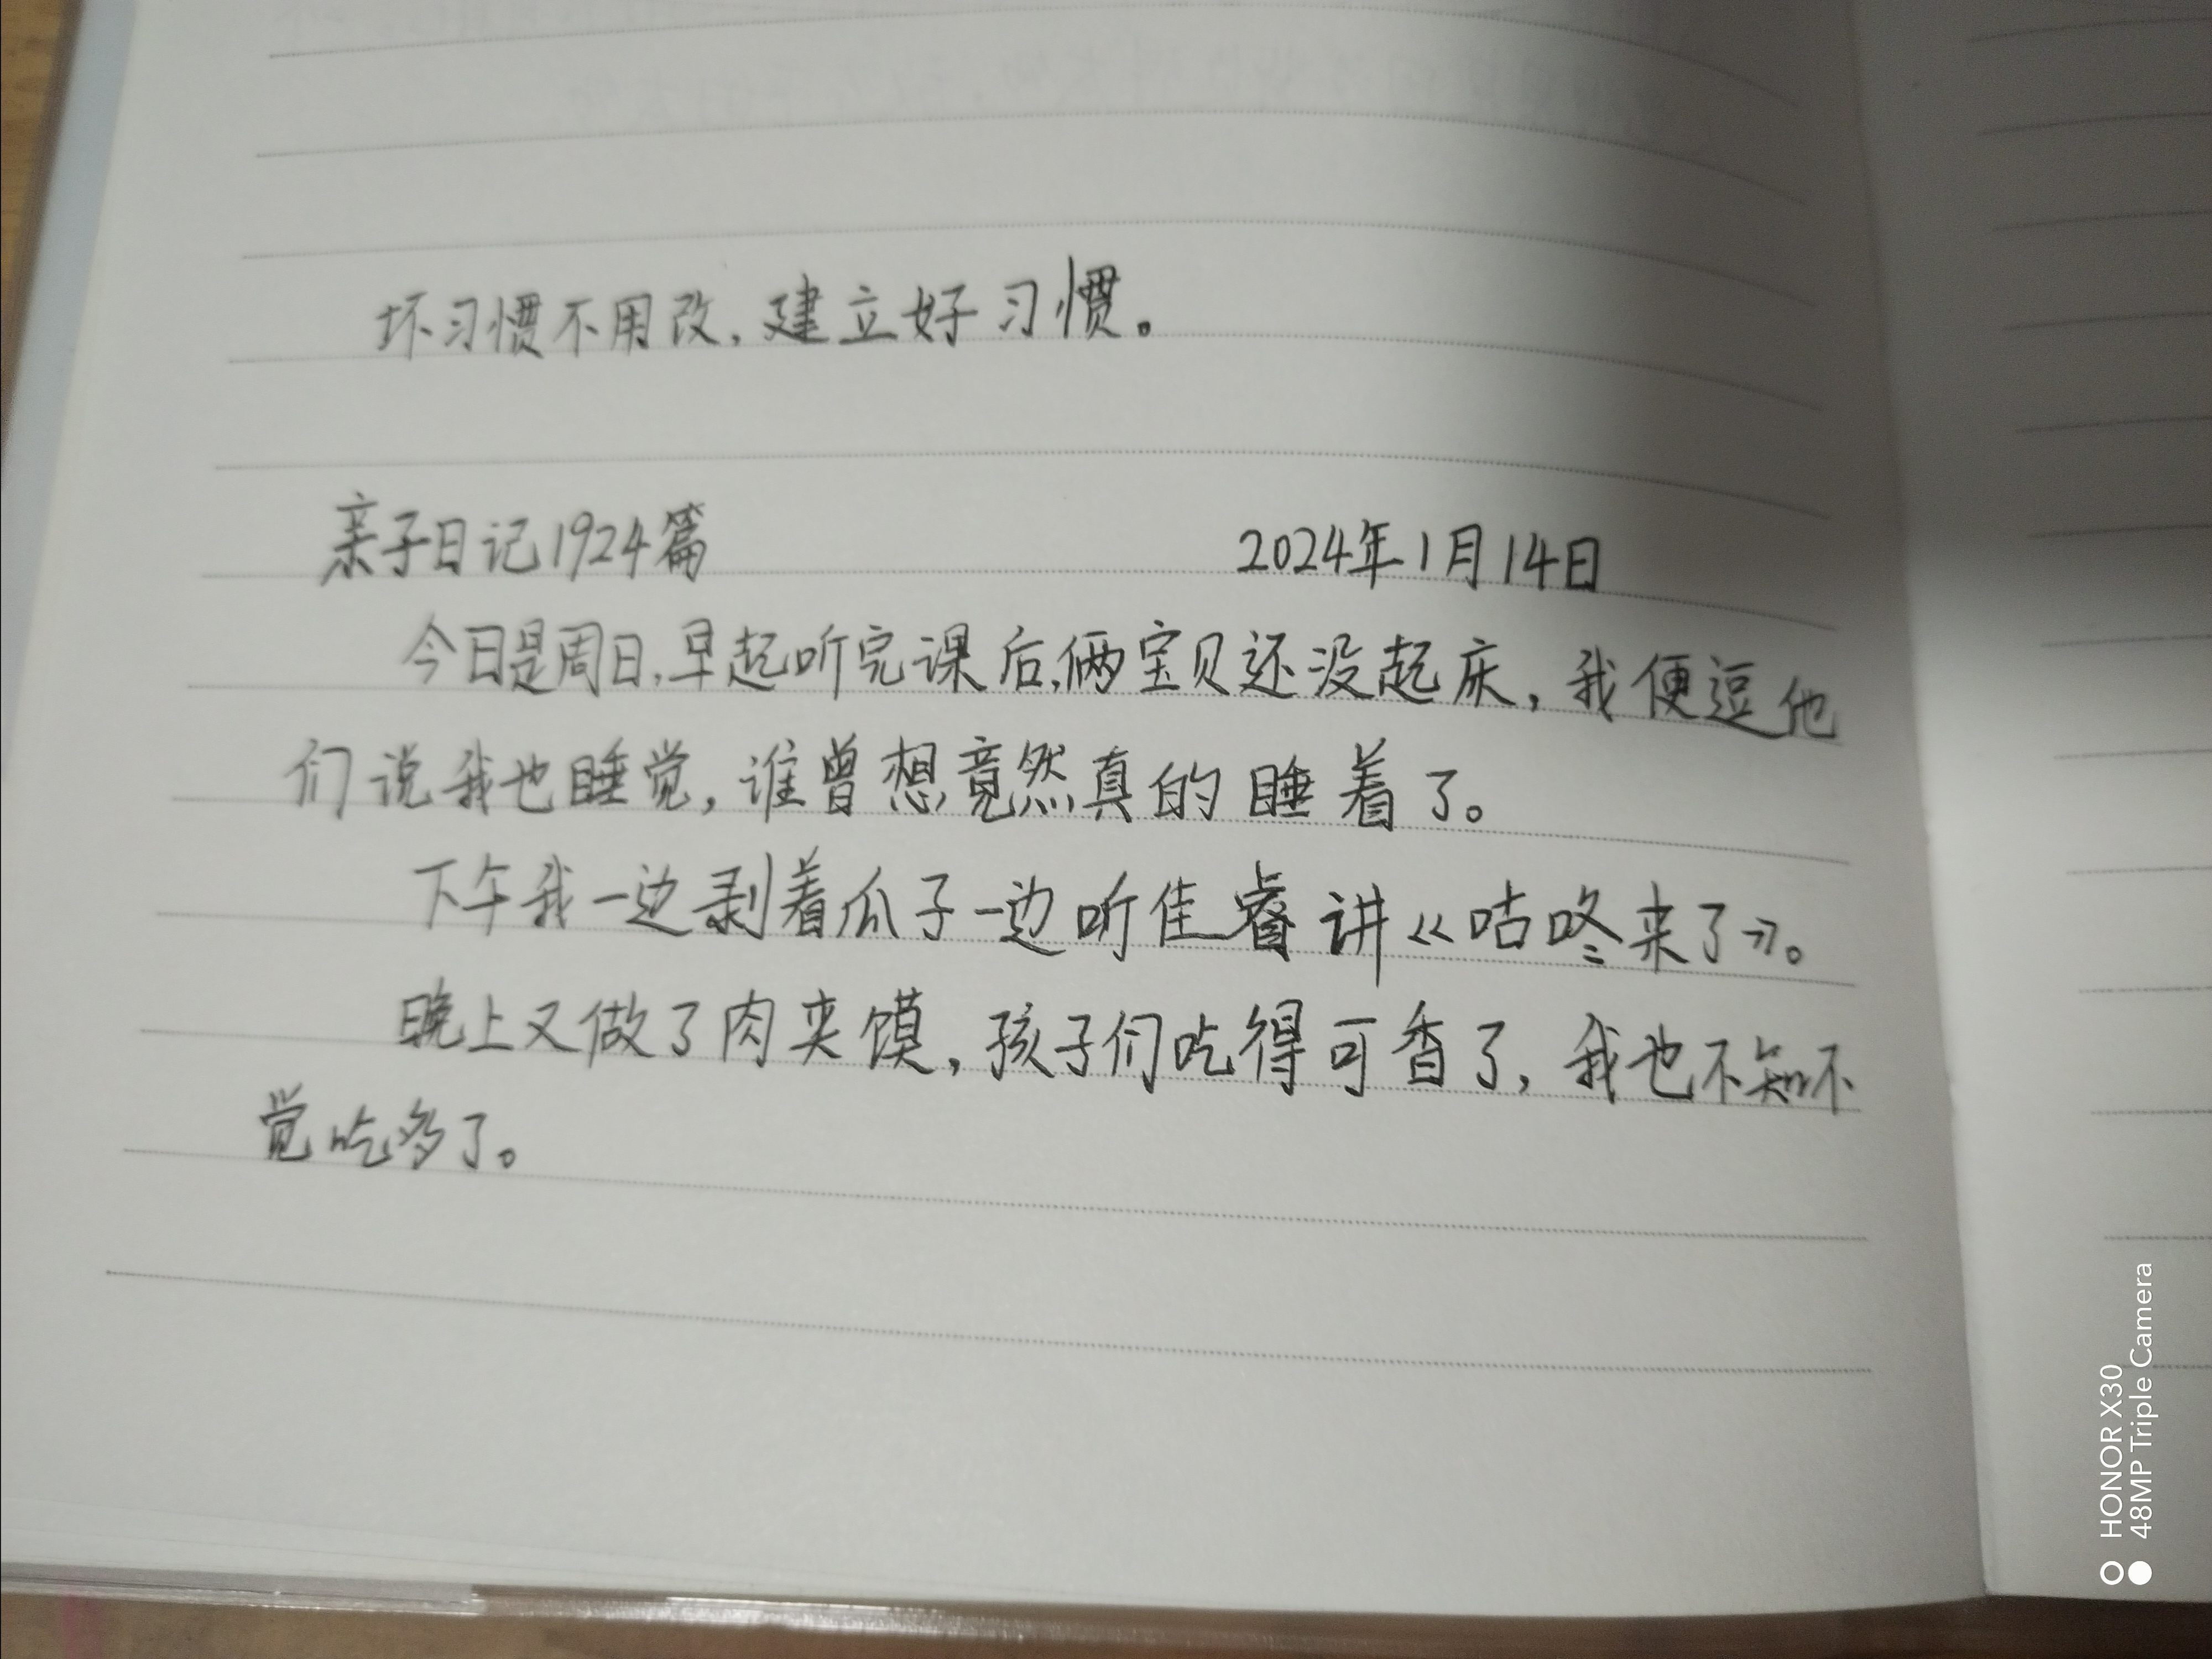 坏习惯不用改，建立好习惯。
亲子日记1924篇 2024年1月14日
今日是周日，早起听完课后，俩宝贝还没起床，我便逗他
们说我也睡觉，谁曾想竟然真的睡着了。
下午我一边剥着瓜子一边听佳睿讲《咕咚来了》。
晚上又做了肉夹馍，孩子们吃得可香了，我也不知不
觉吃多了。
HONOR X30
48MP Triple Camera